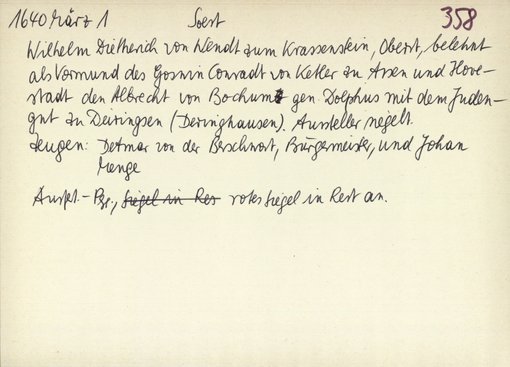 1640 März 1 Soest 358
Wilhelm Dietherich von Wendt zum Krassenstein, Obert, belehnt
als Vormund des Goswin Conradt von Ketler zu Assen und Hove-
stadt den Albrecht von Bochum gen. Dolphus mit dem Juden-
gut zu Deiringsen (Deringhausen). Aussteller siegelt.
Zeugen: Detmar von der Berschwort, Bürgermeister, und Johan
Menge
Ausf.- Pg., Siegel in Res rotes Siegel in Rest an.